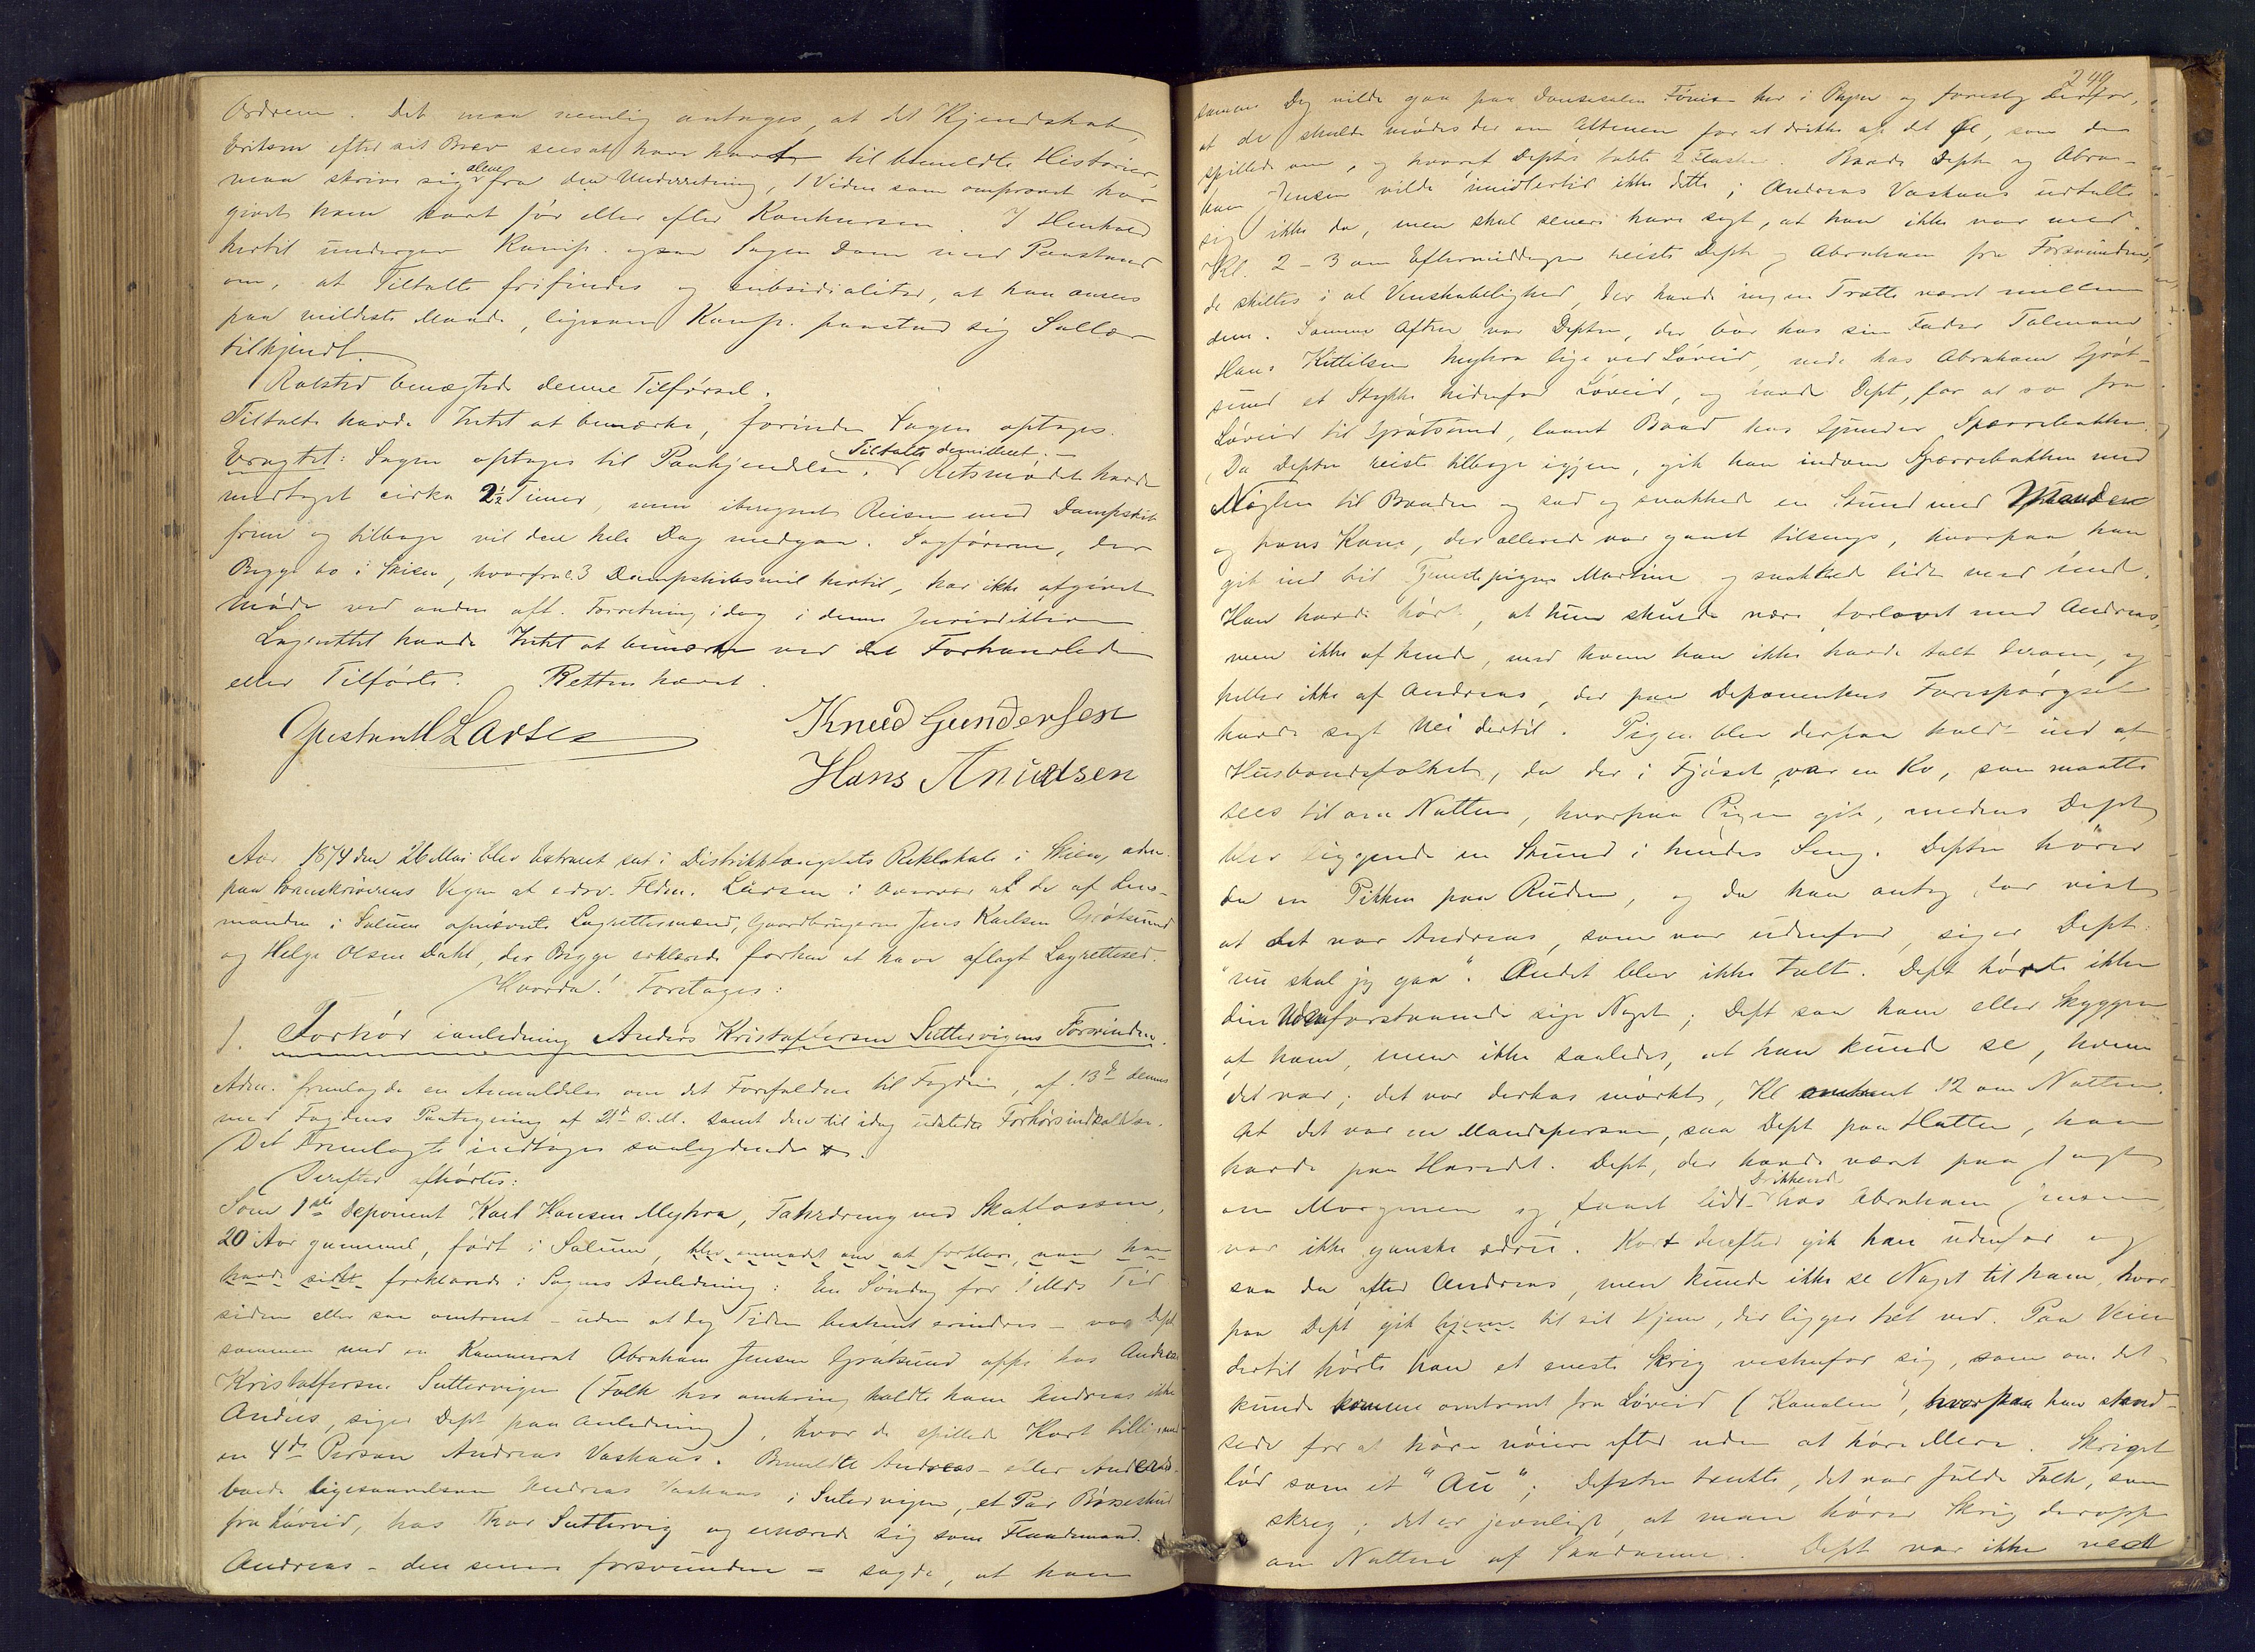 Ordrene. Det maa nemlig antages, at det Kjendskab,
Eriksen efter sit Brev sees at have havt til bemeldte Historier,
maa skrive sig alene fra den Underretning, 1 Vidne som omprovet har
givet ham kort før eller efter Konkursen. I Henhold
hertil undergav Komp. ogsaa Sagen Dom med Paastand
om, at Tiltalte frifindes og subsidialiter, at han ansees
paa mildeste Maade, ligesom Komp. paastod sig Sallær
tilkjendt.
Rolsted benægtede denne Tilførsel.
Tiltalte havde Intet at bemærke, forinden Sagen optages.
Eragtet: Sagen optages til Paakjendelse. Tiltalte demitteret. – Retsmødet havde
medtaget cirka 2½ Timer, men iberegnet Reisen med Dampskib
frem og tilbage vil den hele Dag medgaa. Sagførerne, der
Begge bo i Skien, hvorfra 3 Dampskibsmil hertil, har ikke afgivet
Møde ved anden off. Forretning idag i denne Jurisdiktion
Lagrettet havde Intet at bemærke ved det Forhandlede
eller Tilførte. Retten hævet.
Larsen Knud Gundersen
Hans Knudsen
Aar 1874 den 26 Mai blev Extraret sat i Distriktsfængslets Retslokale i Skien, adm.
paa Sorenskriverens Vegne af edsv. Fldm. Larsen i Overvær af de af Lens-
manden i Solum opnævnte Lagrettesmænd, Gaardbrugerne Jens Karlsen Grøtsund
og Helge Olsen Dahl, der Begge erklærede forhen at have aflagt Lagretteed.
Hvorda! Foretages:
1. Forhør ianledning Anders Kristoffersen Suttervigens Forsvinden.
Adm. fremlagde en Anmeldelse om det Forefaldne til Fogden, af 13de dennes
med Fogdens Paategning af 21de s. M. samt den til idag udstedte Forhørsindkaldelse.
Det Fremlagte indtages saalydende.
Derefter afhørtes:
Som 1ste Deponent Karl Hansen Myhra, Faherdreng ved Skotfossen,
20 Aar gammel, født i Solum, blev anmodet om at forklare, naar han
havde sidst forklarede i Sagens Anledning: En Søndag for 1 Mds Tid
siden eller saa omtrent – uden at dog Tiden bestemt erindres – var Dept
sammen med en Kammerat Abraham Jensen Grøtsund oppe hos Andreas
Kristoffersen Suttervigen (Folk her omkring kaldte ham Andreas ikke
Anders, siger Dept paa Anledning), hvor de spillede Kort tilligemed
en 4de Person Andreas Vashaus. Bemeldte Andreas – eller Anders
boede ligesaavelsom Andreas Vashaus i Sutervigen, et Par Bøsseskud
fra Løveid, hos Thor Suttervig og ernærede sig som Flaademand.
Andreas – den senere forsvundne – sagde, at han
249
samme Dag vilde gaa paa Dansesalen Fönix her i Byen og foreslog derfor,
at de skulde mødes der om Aftenen for at drikke op det Øl, som de
spillede om, og hvoraf Deptn tabte 2 Flasker. Baade Deptn og Abra-
ham Jensen vilde imidlertid ikke dette; Andreas Vashaus udtalte
sig ikke da, men skal senere have sagt, at han ikke var med.
Kl. 2–3 om Eftermiddagen reiste Deptn og Abraham fra Forsvundne;
de skiltes i al Venskabelighed, der havde ingen Trætte været mellem
dem. Samme Aften var Deptn, der bor hos sin Fader Tolmand
Hans Kittilsen Myhra lige ved Løveid, nede hos Abraham Grøt-
sund et Stykke nedenfor Løveid, og havde Dept, for at ro fra
Løveid til Grøtsund, laant Baad hos Gunder Sparrebakken
Da Deptn reiste tilbage igjen, gik han indom Sparrebakken med
Nøglen til Baaden og sad og snakkede en Stund med Manden
og hans Kone, der allerede var gaaet tilsengs, hvorpaa han
gik ind til Tjenestepigen Martine og snakkede lidt med hende.
Han havde hørt, at hun skulde være forlovet med Andreas,
men ikke af hende, med hvem han ikke havde talt derom, og
heller ikke af Andreas, der paa Deponentens Forespørgsel
havde sagt nei dertil. Pigen blev derpaa kaldt ind af
Husbondsfolket, da der i Fjøset var en Ko, som maatte
sees til om Natten, hvorpaa Pigen gik, medens Dept
blev liggende en Stund i hendes Seng. Deptn hører
da en Pikken paa Ruden, og da han antog for vist,
at det var Andreas, som var udenfor, siger Dept.
"nu skal jeg gaa". Andet blev ikke talt. Dept hørte ikke
den Udenforstaaende sige Noget; Dept saa ham eller Skyggen
af ham, men ikke saaledes, at han kunde se, hvem
det var; det var derhos mørkt, Kl omtrent 12 om Natten.
At det var en Mandsperson, saa Dept paa Hatten, han
havde paa Hovedet. Dept, der havde været paa Jagt
om Morgenen og faaet lidt Drikkende hos Abraham Jensen,
var ikke ganske ædru. Kort derefter gik han udenfor og
saa da efter Andreas, men kunde ikke se Noget til ham, hvor-
paa Dept gik hjem til sit Hjem, der ligger tæt ved. Paa Veien
dertil hørte han et eneste Skrig vestenfor sig, som om det
kunde komme omtrent fra Løveid (Kanalen), hvorpaa han stand-
sede for at høre nøiere efter uden at høre Mere. Skriget
lød som et "Au"; Deptn tænkte, det var fulde Folk, som
skreg; det er jevnligt, at man hører Skrig deroppe
om Natten af Saadanne. Dept var ikke ved